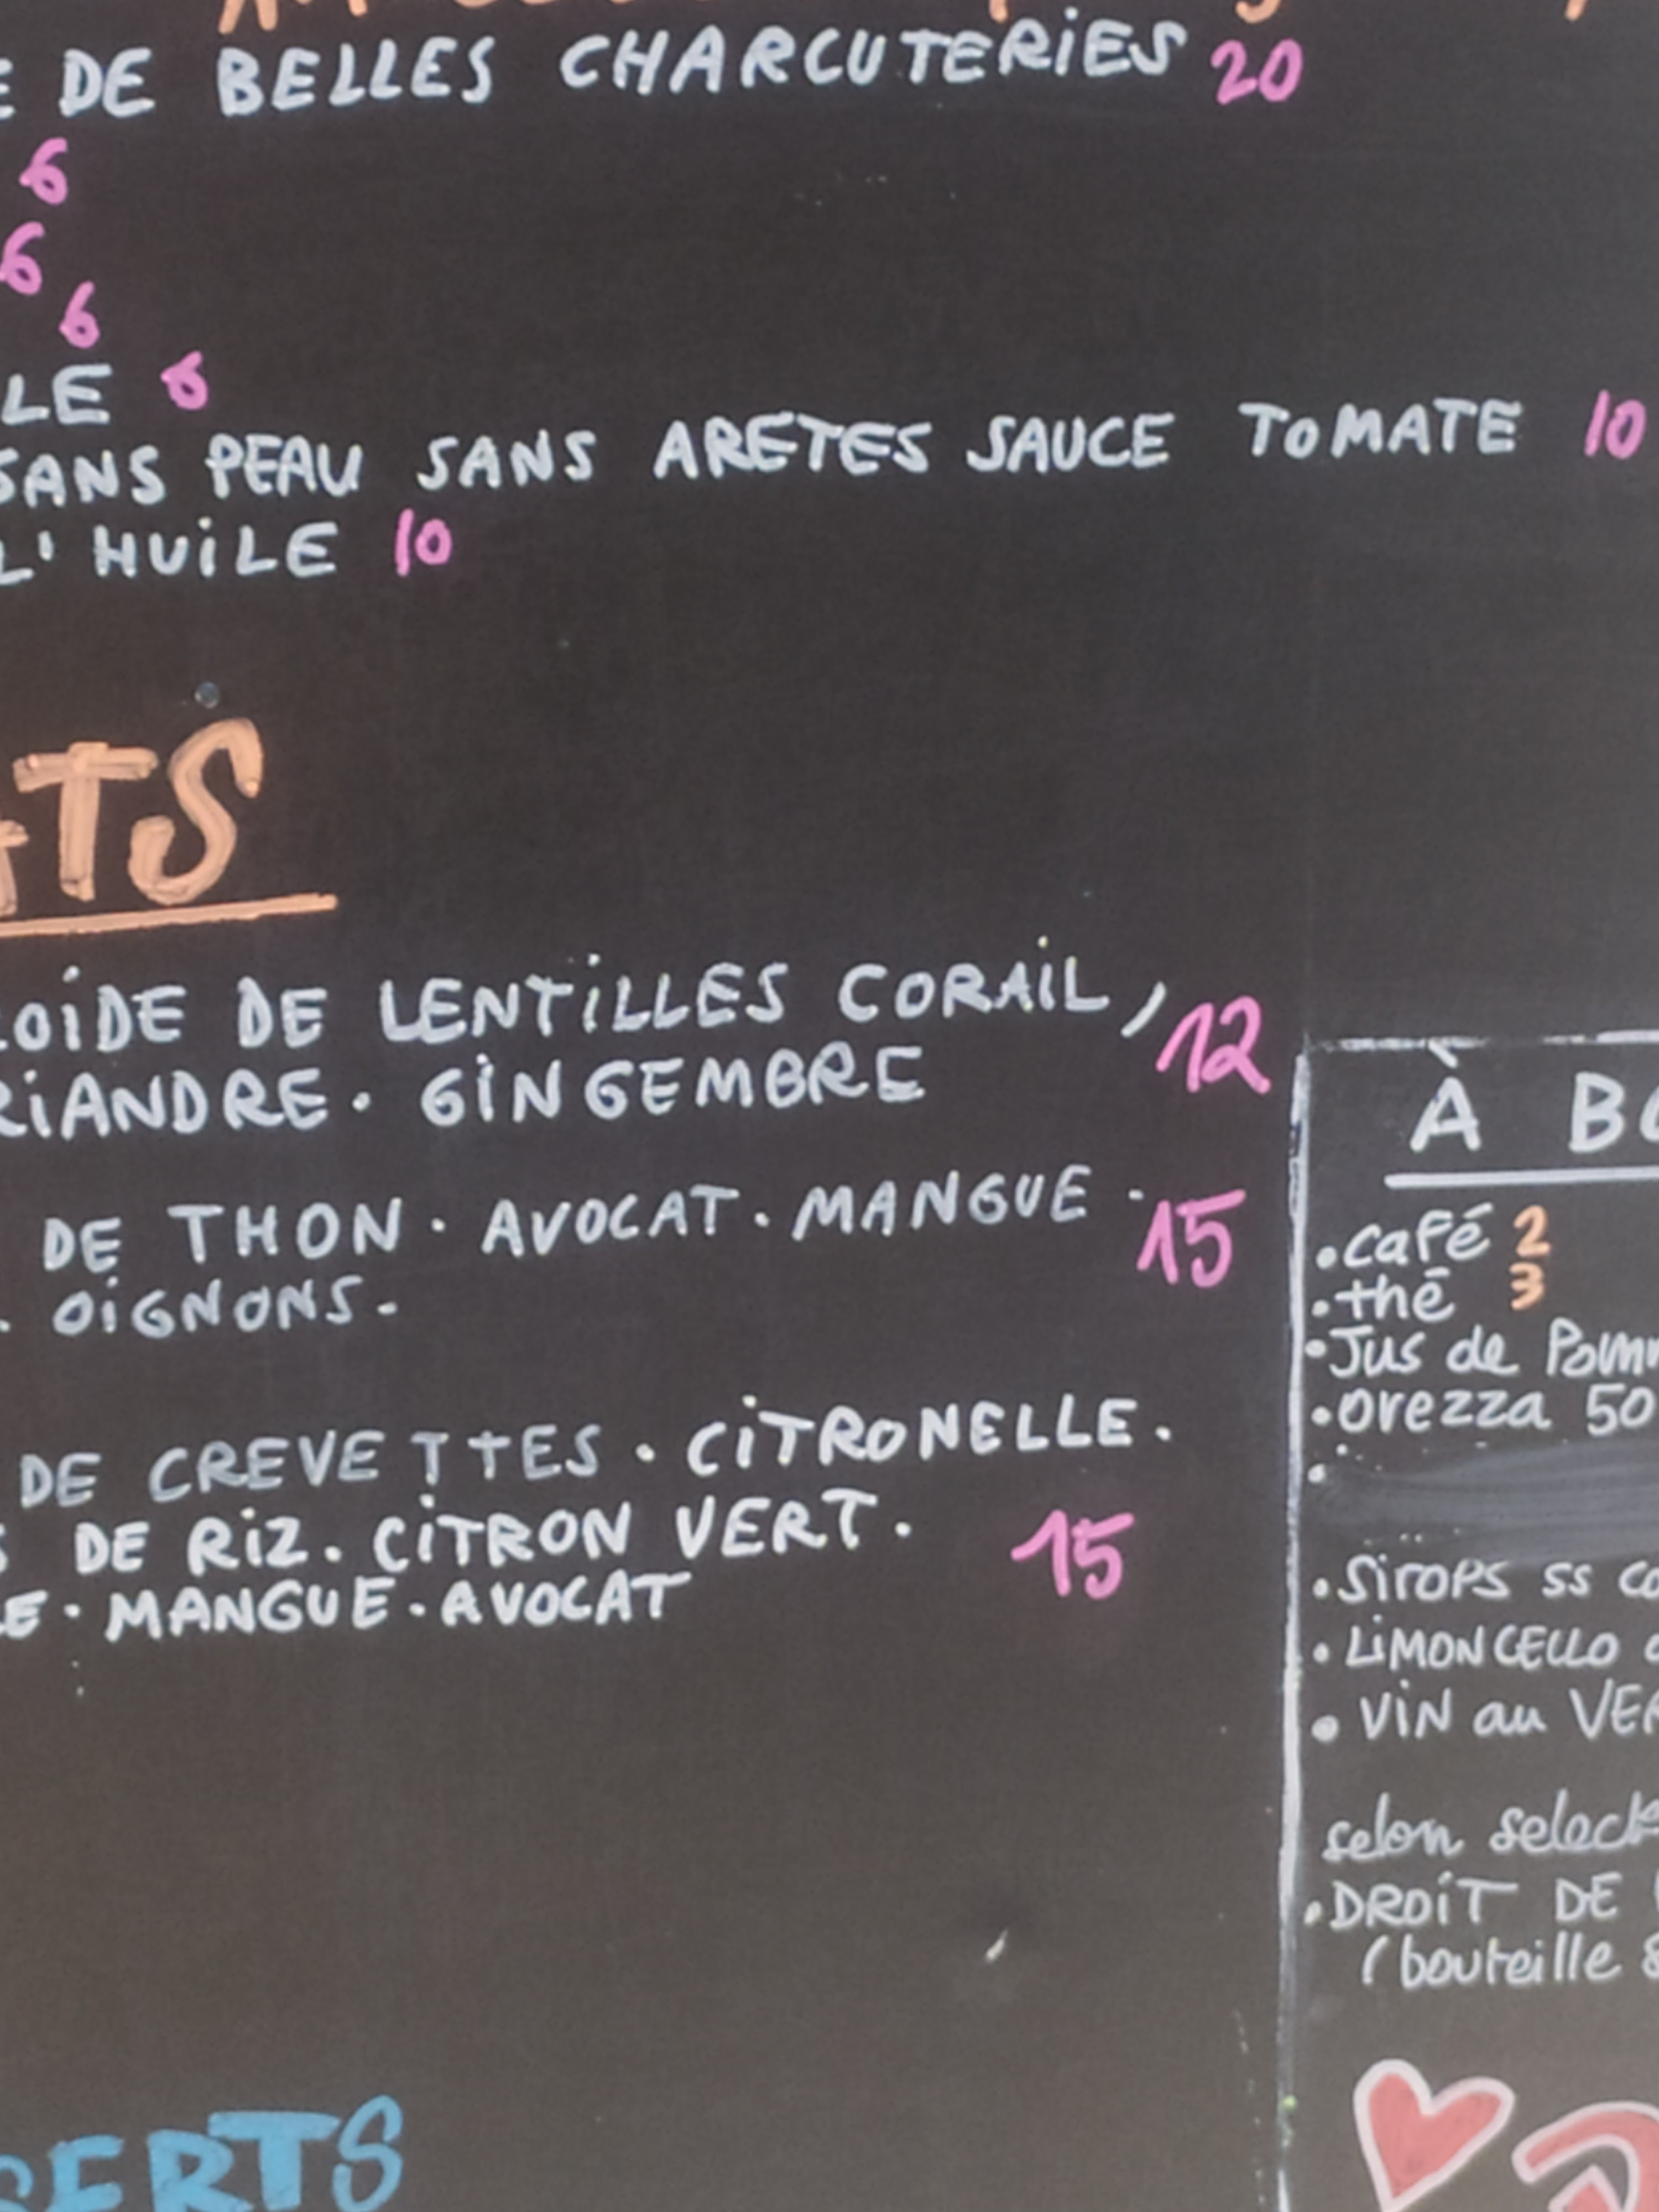 DE BELLES CHARCUTERIES 20
6
6
6
LE 6
SANS PEAU SANS ARETES SAUCE TOMATE 10
L' HUiLE 10
TS
LOiDE DE LENTiLLES CORAiL, 12
RiANDRE. GiNGEMBRE
DE THON. AVOCAT. MANGUE. 15
. OiGNONS.
DE CREVETTES. CiTRONELLE.
DE RiZ. CiTRON VERT. 15
LE. MANGUE. AVOCAT
SERTS
À BO
.café 2
.thé 3
.Jus de Pomm
.orezza 50
.SiroPS ss co
. LiMONCELLO
. ViN au VER
selon select
.DROiT DE
(bouteille